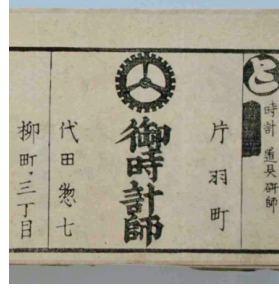 と
時計 道具研師
片羽町
御時計師
代田惣七
柳町三丁目